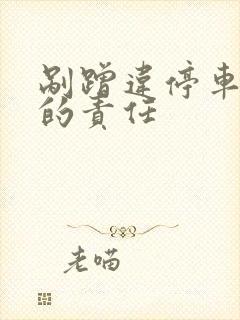 剐蹭違停車
的責任
老喵